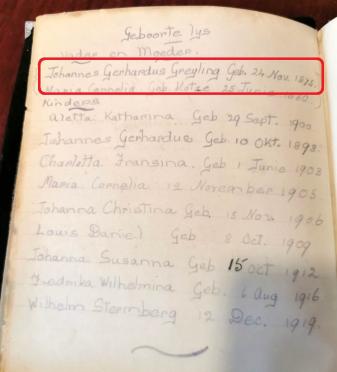 Geboorte lys
Vader en Moeder.
Johannes Gerhardus Greyling Geb. 24 Nov.
Maria Cornelia Geb. Kotze 25 Junie
Kinders
Aletta Katharina Geb 29 Sept. 1900
Johannes Gerhardus Geb 10 Okt.
Charlotta Fransina. Geb 1 Junie 1903
Maria Cornelia 12 November 1905
Johanna Christina Geb. Nov 1906
Louis Daniel Geb 8 Oct. 1909
Johanna Susanna Geb 15 Oct 1912
Fredrika Wilhelmina Geb. 6 Aug 1916
Wilhelm Sternberg 12 Dec. 1919.